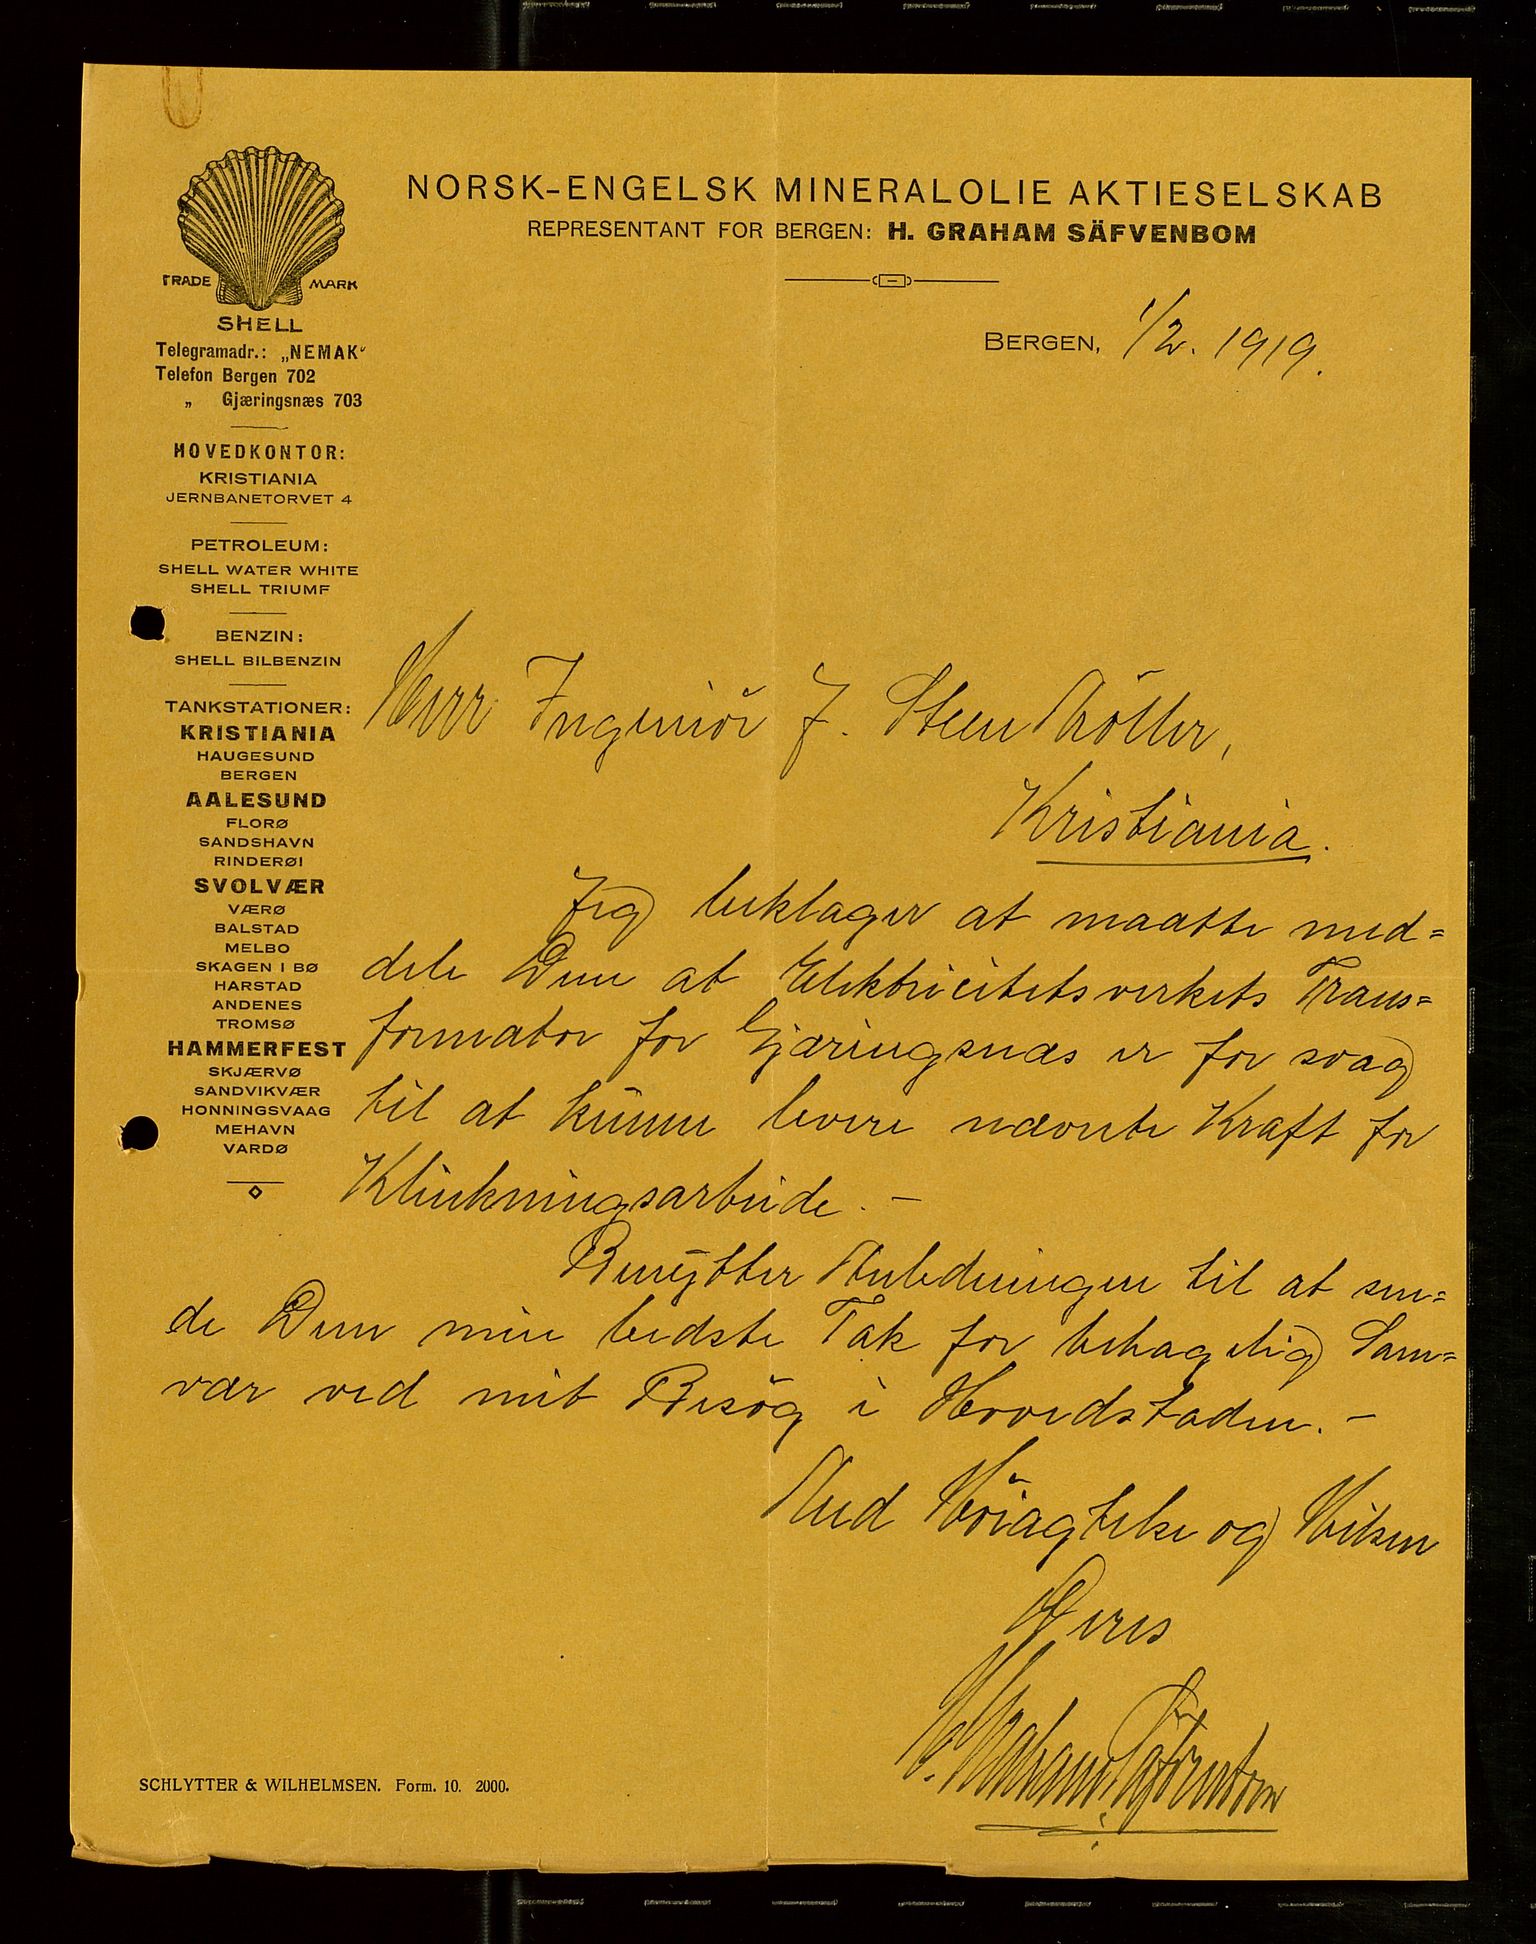 NORSK-ENGELSK MINERALOLIE AKTIESELSKAB
REPRESENTANT FOR BERGEN: H. GRAHAM SÄFVENBOM
TRADE MARK
SHELL
Telegramadr.: „NEMAK“
Telefon Bergen 702
„ Gjæringsnæs 703
HOVEDKONTOR:
KRISTIANIA
JERNBANETORVET 4
PETROLEUM:
SHELL WATER WHITE
SHELL TRIUMF
BENZIN:
SHELL BILBENZIN
TANKSTATIONER:
KRISTIANIA
HAUGESUND
BERGEN
AALESUND
FLORØ
SANDSHAVN
RINDERØI
SVOLVÆR
VÆRØ
BALSTAD
MELBO
SKAGEN I BØ
HARSTAD
ANDENES
TROMSØ
HAMMERFEST
SKJÆRVØ
SANDVIKVÆR
HONNINGSVAAG
MEHAVN
VARDØ
BERGEN, 1/2. 1919.
Herr Ingeniör J. Steen Möller,
Kristiania.
Jeg beklager at maatte med=
dele Dem at Elektricitetsverkets Trans=
formator for Gjæringsnæs er for svag
til at kunne levere nævnte Kraft for
Klinkningsarbeide. –
Benytter Anledningen til at sen=
de Dem min bedste Tak for behagelig Sam=
vær ved mit Besög i Hovedstaden. –
Med Höiagtelse og Hilsen
Deres
H. Graham Säfvenbom
SCHLYTTER & WILHELMSEN. Form. 10. 2000.